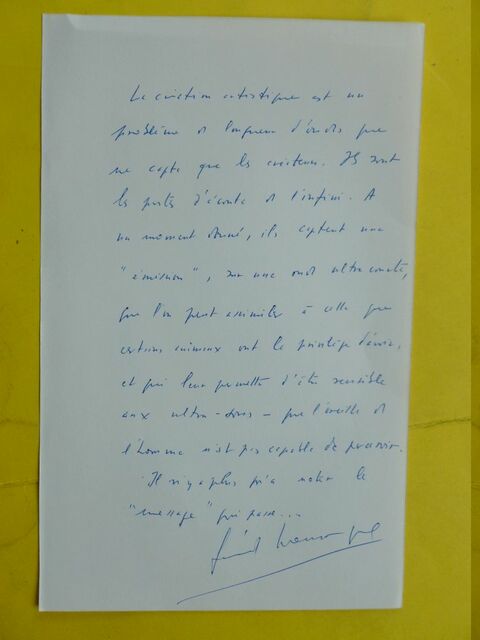 La création artistique est un
problème de longueur d'ondes que
ne capte que les créateurs. Ils sont
les postes d'écoute de l'infini. A
un moment donné, ils captent une
"émission", sur une onde ultra courte,
que l'on peut assimiler à celle que
certains animaux ont le privilège d'avoir,
et qui leur permette d'être sensible
aux ultra-sons - que l'oreille de
l'homme n'est pas capable de percevoir.
Il n'y a plus qu'à noter le
"message" qui passe...